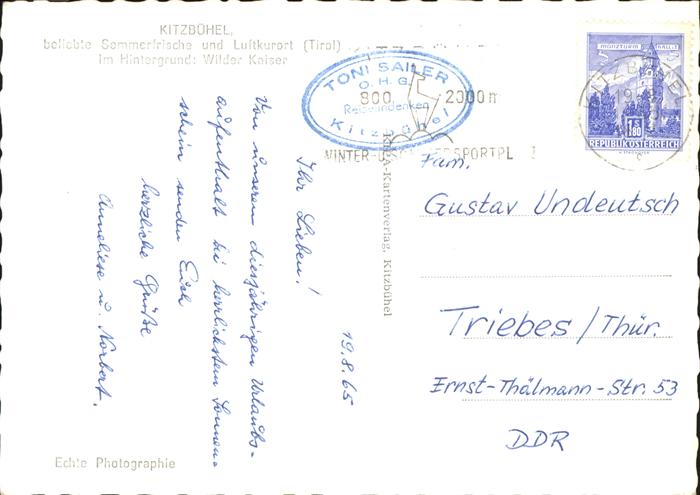 KITZBÜHEL,
beliebte Sommerfrische und Luftkurort (Tirol)
Im Hintergrund: Wilder Kaiser
TONI SAILER
O. H. G.
Reiseandenken
Kitzbühel
800 2000 m
WINTER- SPORTPL
KITZBÜHEL
MÜNZTURM HALL i. T.
S 1.80
REPUBLIK ÖSTERREICH
19.8.65
Ihr Lieben!
Von unserem diesjährigen Urlaubs-
aufenthalt bei herrlichstem Sonnen-
schein senden Euch
herzliche Grüße
Anneliese u. Norbert.
-Kartenverlag, Kitzbühel
Fam.
Gustav Undeutsch
Triebes/Thür.
Ernst-Thälmann-Str. 53
DDR
Echte Photographie